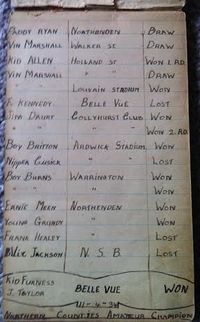 PADDY RYAN NORTHENDEN DRAW
VIN MARSHALL WALKER ST DRAW
KID ALLEN HOLLAND ST WON 1 RD.
VIN MARSHALL " " DRAW
LOUVAIN STADIUM WON
KENNEDY BELLE VUE LOST
DAURY COLLYHURST CLUB WON
" " WON 2 RD
BOY BRITTON ARDWICK STADIUM WON
NIPPER CUSICK " " LOST
BOY BURNS WARRINGTON WON
" " " WON
ERNIE MEEN NORTHENDEN WON
YOUNG GRUNDY " WON
FRANK HEALEY " LOST
JACKSON N. S. B. LOST
KID FURNESS
J. TAYLOR BELLE VUE WON
NORTHERN COUNTIES AMATEUR CHAMPION